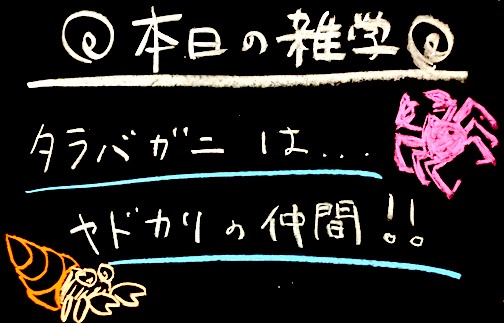 本日の雑学
タラバガニは...
ヤドカリの仲間!!